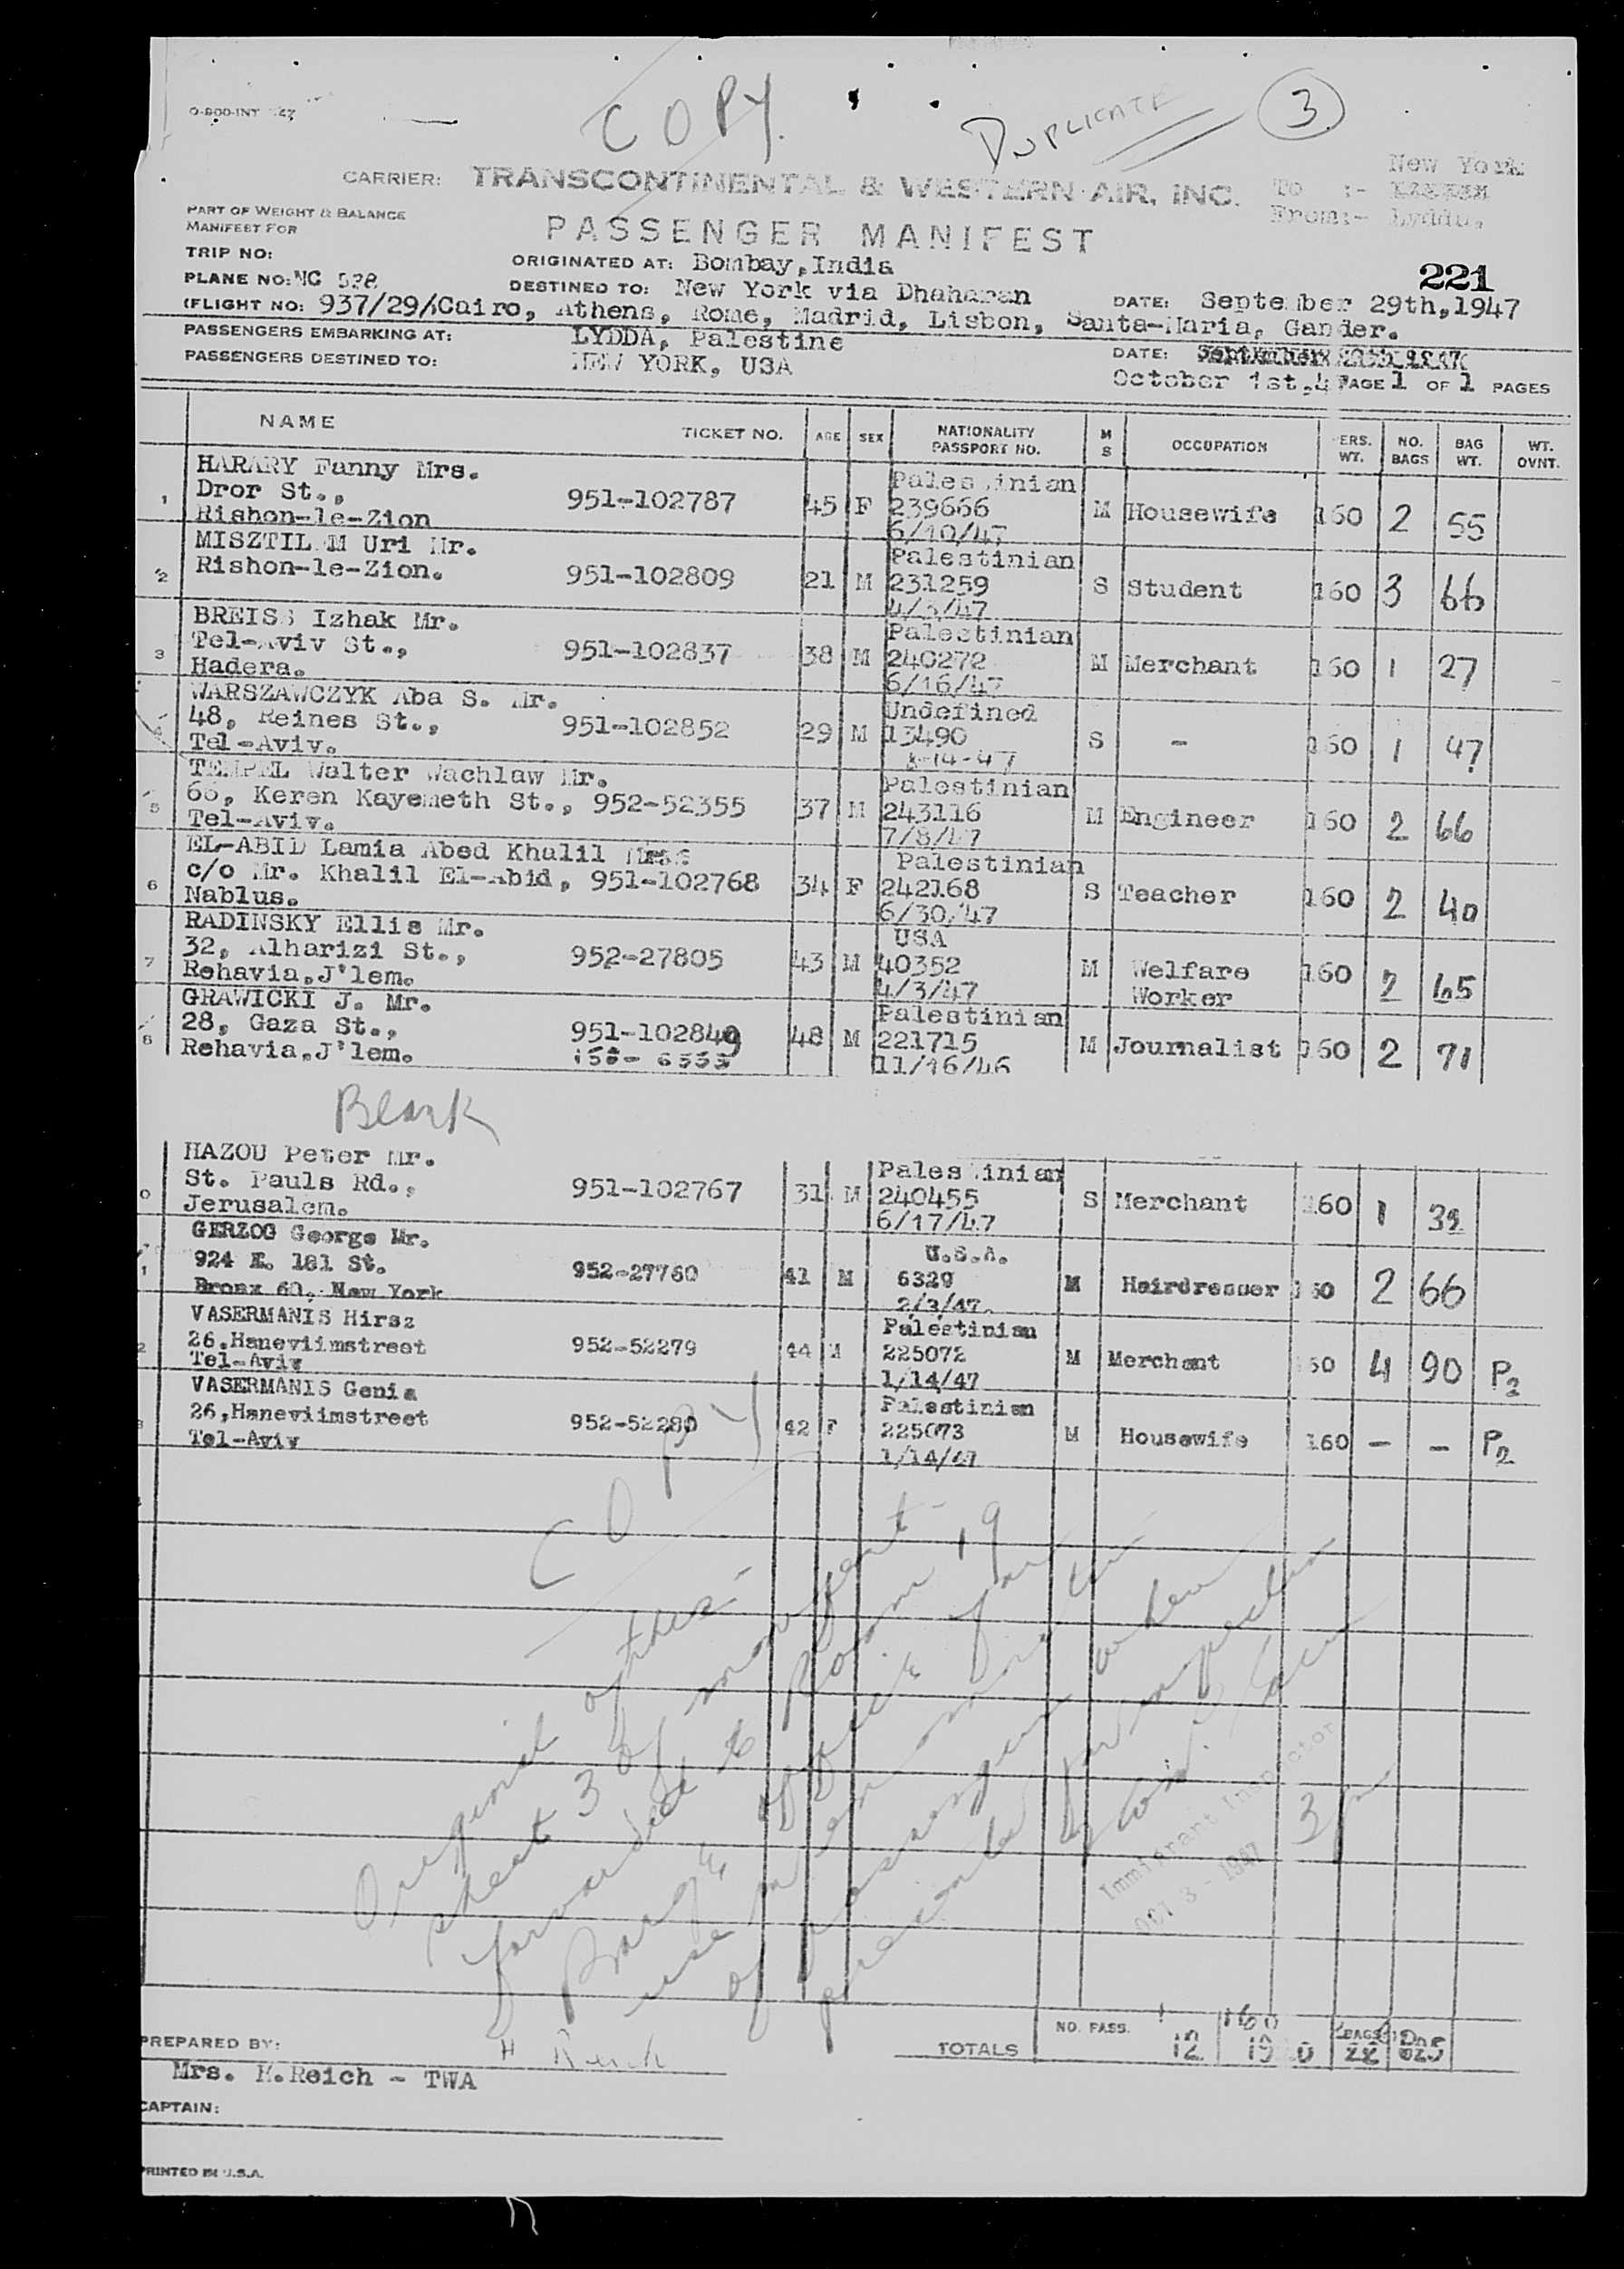 O-800-INT 47
COPY
DUPLICATE
3
CARRIER: TRANSCONTINENTAL & WESTERN AIR, INC.
New York
To :-
From:- Lydda,
PART OF WEIGHT & BALANCE
MANIFEST FOR
PASSENGER MANIFEST
TRIP NO:
ORIGINATED AT: Bombay, India
221
PLANE NO: NC
DESTINED TO: New York via Dhaharan
DATE: September 29th, 1947
FLIGHT NO: 937/29/ Cairo, Athens, Rome, Madrid, Lisbon, Santa-Maria, Gander.
PASSENGERS EMBARKING AT: LYDDA, Palestine
PASSENGERS DESTINED TO: NEW YORK, USA
DATE:
October 1st, 4 PAGE 1 OF 1 PAGES
NAME TICKET NO. AGE SEX NATIONALITY PASSPORT NO. M S OCCUPATION PERS. WT. NO. BAGS BAG WT. WT. OVNT.
HARARY Fanny Mrs. Palestinian
1 Dror St., 951-102787 45 F 239666 M Housewife 160 2 55
Rishon-le-Zion 6/10/47
MISZTIL M Uri Mr. Palestinian
2 Rishon-le-Zion. 951-102809 21 M 231259 S Student 160 3 66
4/3/47
BREISS Izhak Mr. Palestinian
3 Tel-Aviv St., 951-102837 38 M 240272 M Merchant 160 1 27
Hadera. 6/16/47
WARSZAWCZYK Aba S. Mr. Undefined
48, Reines St., 951-102852 29 M 13490 S - 160 1 47
Tel-Aviv. -14-47
TEMPEL Walter Wachlaw Mr. Palestinian
5 Keren Kayemeth St., 952-52355 37 M 243116 M Engineer 160 2 66
Tel-Aviv. 7/8/47
EL-ABID Lamia Abed Khalil Palestinian
6 c/o Mr. Khalil El-Abid, 951-102768 34 F 242168 S Teacher 160 2 40
Nablus. 6/30/47
RADINSKY Ellis Mr. USA
7 32, Alharizi St., 952-27805 43 M 40352 M Welfare 160 2 65
Rehavia, J'lem. 4/3/47 Worker
GRAWICKI J. Mr. Palestinian
8 28, Gaza St., 951-102849 48 M 221715 M Journalist 160 2 71
Rehavia, J'lem. 11/16/46
Blank
HAZOU Peter Mr. Palestinian
0 St. Pauls Rd., 951-102767 31 M 240455 S Merchant 160 1 32
Jerusalem. 6/17/47
GERZOG George Mr. U.S.A.
1 924 E. 181 St. 952-27760 41 M 6329 M Hairdresser 160 2 66
Bronx 60, New York 2/3/47.
VASERMANIS Hirsz Palestinian
2 26,Haneviimstreet 952-52279 44 M 225072 M Merchant 160 4 90 P2
Tel-Aviv 1/14/47
VASERMANIS Genia Palestinian
3 26,Haneviimstreet 952-52280 42 F 225073 M Housewife 160 - - P2
Tel-Aviv 1/14/47
COPY
Original of this
sheet 3 of manifest
forwarded to Room 19
Barge office for
use in examination
of passengers when
presented for inspection
Immigrant Inspector
OCT 3 - 1947
NO. PASS.
TOTALS 12
BAGS
PREPARED BY: H Reich
Mrs. H.Reich - TWA
CAPTAIN:
PRINTED IN U.S.A.